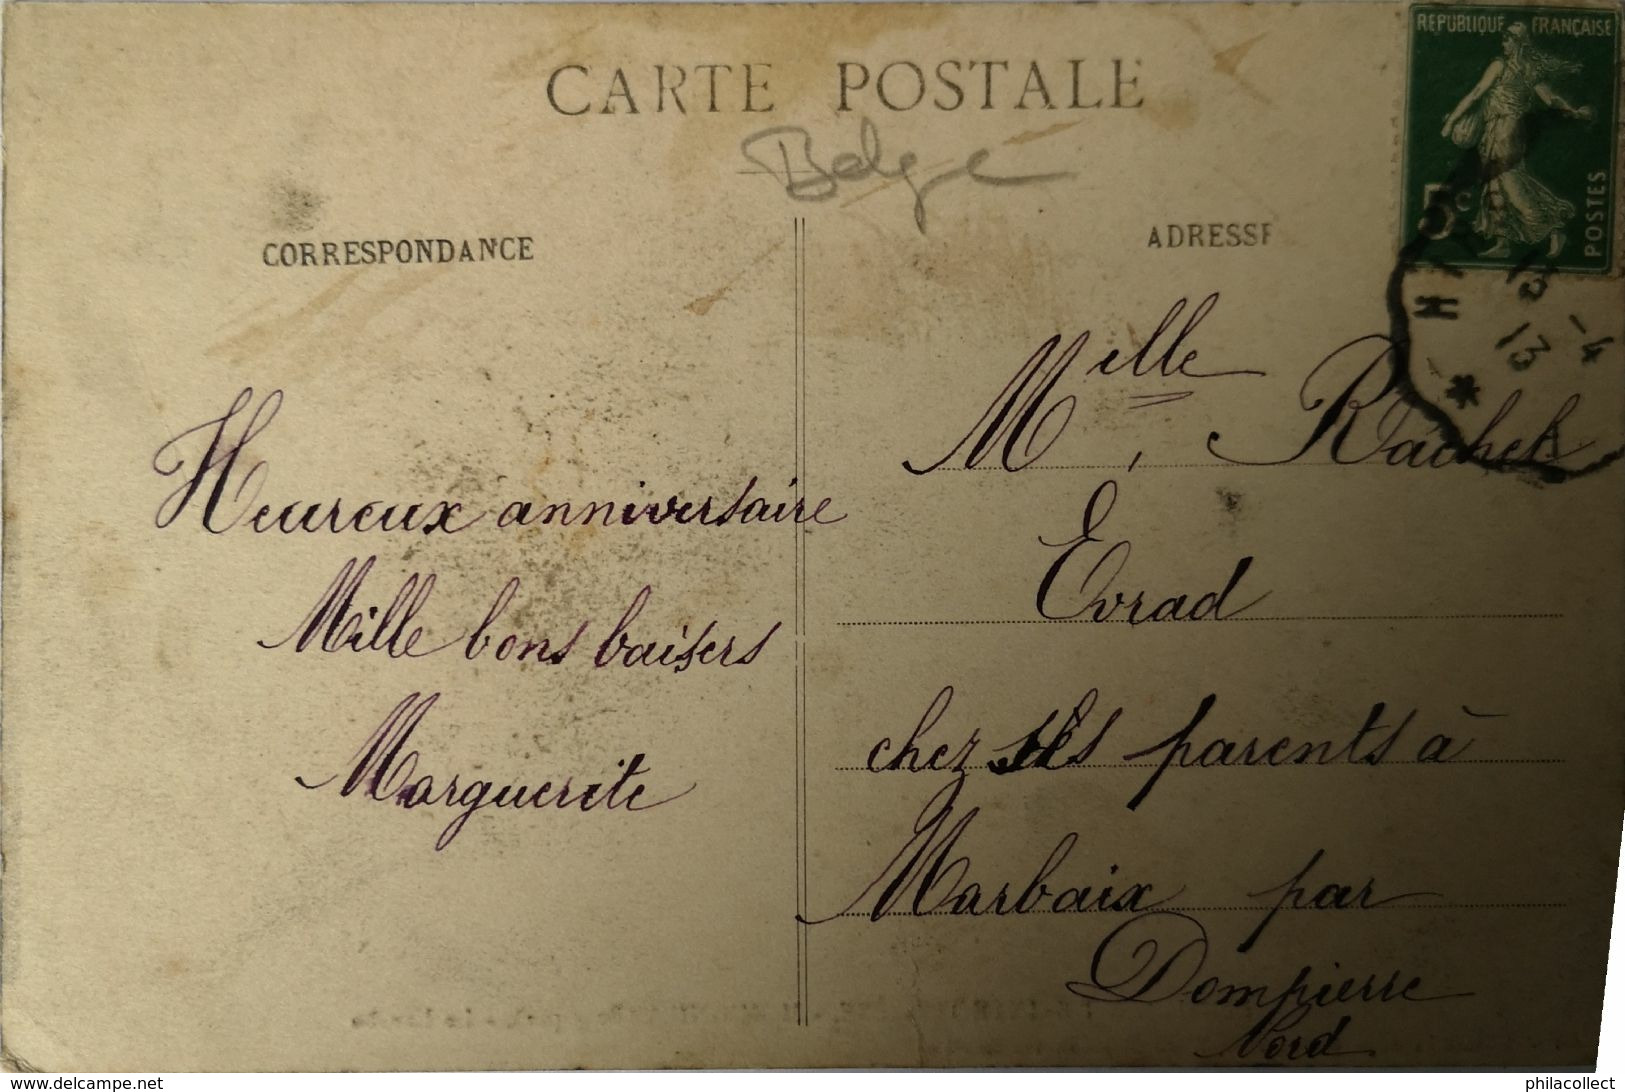 CARTE POSTALE
Belge
CORRESPONDANCE
ADRESSE
REPUBLIQUE FRANÇAISE
5c
POSTES
13 -4
13
Heureux anniversaire
Mille bons baisers
Marguerite
Melle Rachel
Evrad
chez ses parents à
Marbaix par
Dompierre
Nord
delcampe.net
philacollect